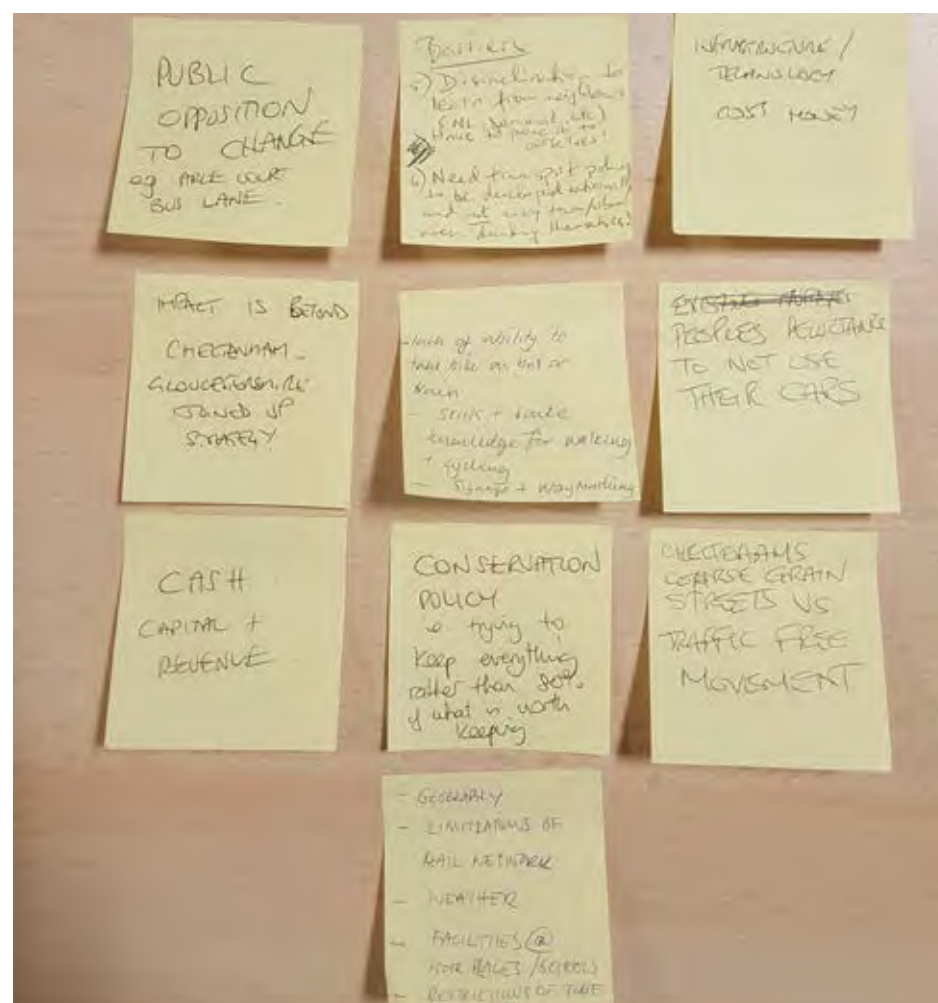 PUBLIC
OPPOSITION
TO CHANGE
eg ARLE COURT
BUS LANE.
Barriers
5) Disinclination to
learn from neighbours
(NL, Denmark, etc)
Have to prove it to
ourselves!
6) Need transport policy
to be developed nationally
and not every town/urban
area doing themselves!
INFRASTRUCTURE /
TECHNOLOGY
COST MONEY
IMPACT IS BEYOND
CHELTENHAM -
GLOUCESTERSHIRE
JOINED UP
STRATEGY
- lack of ability to
take bike on bus or
train
- skills + route
knowledge for walking
+ cycling
- signage + waymarking
PEOPLES RELUCTANCE
TO NOT USE
THEIR CARS
CASH
CAPITAL +
REVENUE
CONSERVATION
POLICY
ie trying to
keep everything
rather than 80%
of what is worth
keeping
CHELTENHAMS
COARSE GRAIN
STREETS VS
TRAFFIC FREE
MOVEMENT
- GEOGRAPHY
- LIMITATIONS OF
RAIL NETWORK
- WEATHER
- FACILITIES @
WORK PLACES / SCHOOLS
- RESTRICTIONS OF TIME